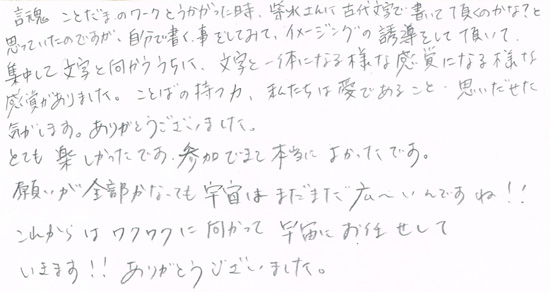 言魂 ことだまのワークとうかがった時、柴水さんに古代文字で書いて頂くのかな?と
思っていたのですが、自分で書く事をしてみて、イメージングの誘導をして頂いて、
集中して文字と向かううちに、文字と一体になる様な感覚になる様な
感覚がありました。ことばの持つ力、私たちは愛であること 思いだせた
気がします。ありがとうございました。
とても楽しかったです。参加できて本当によかったです。
願いが全部かなっても宇宙はまだまだ広〜いんですね!!
これからはワクワクに向かって宇宙にお任せして
いきます!!ありがとうございました。